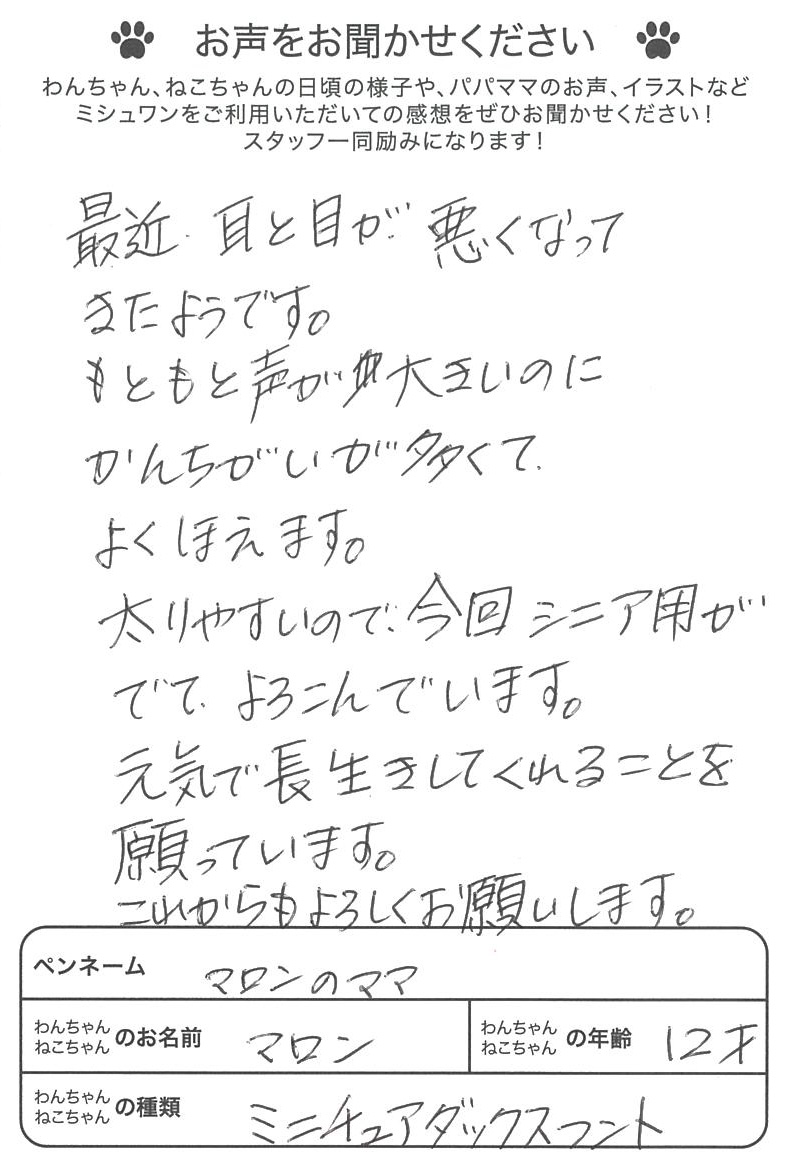 お声をお聞かせください
わんちゃん、ねこちゃんの日頃の様子や、パパママのお声、イラストなど
ミシュワンをご利用いただいての感想をぜひお聞かせください！
スタッフ一同励みになります！
最近、耳と目が悪くなって
きたようです。
もともと声が大きいのに
かんちがいが多くて、
よくほえます。
太りやすいので、今回シニア用が
でて、よろこんでいます。
元気で長生きしてくれることを
願っています。
これからもよろしくお願いします。
ペンネーム マロンのママ
わんちゃん ねこちゃん のお名前 マロン わんちゃん ねこちゃん の年齢 12才
わんちゃん ねこちゃん の種類 ミニチュアダックスフント